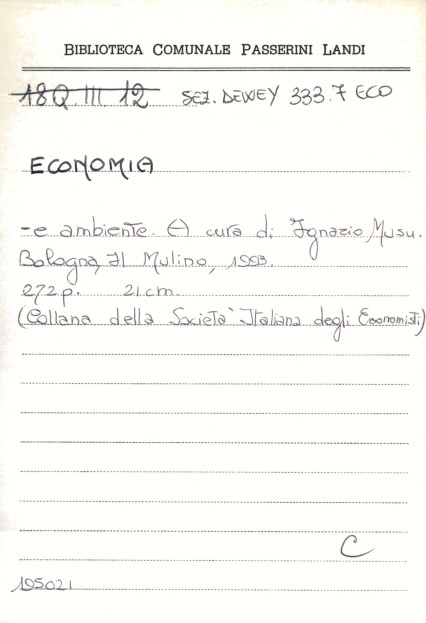 BIBLIOTECA COMUNALE PASSERINI LANDI
18Q III 12 SEZ. DEWEY 333.7 ECO
ECONOMIA
- e ambiente. A cura di Ignazio Musu.
Bologna, Il Mulino, 1993.
272 p. 21 cm.
(Collana della Società Italiana degli Economisti)
C
195021